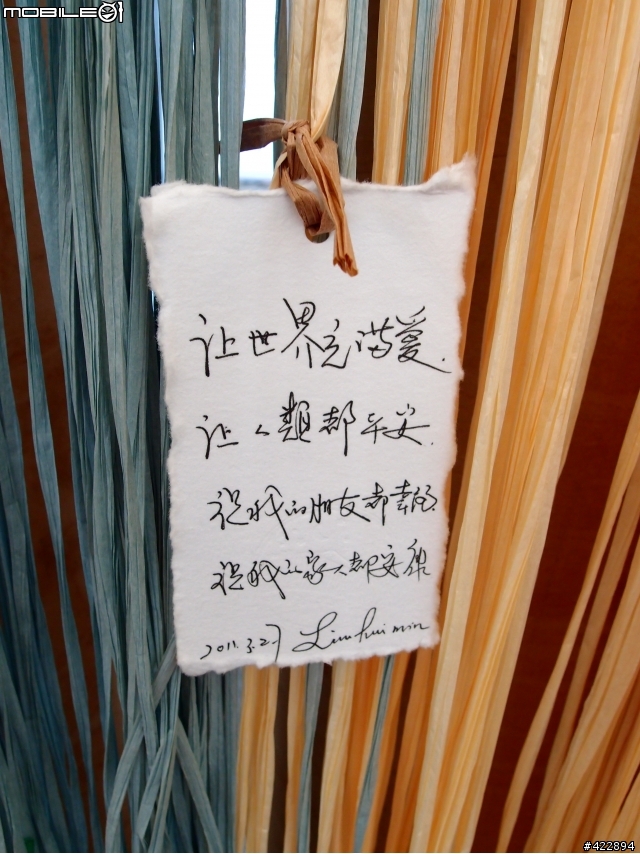 MOBILE01
让世界充满爱.
让人類都平安.
祝我的朋友都幸福.
祝我的家人都安康
2011.3.27 Liu hui min
#422894